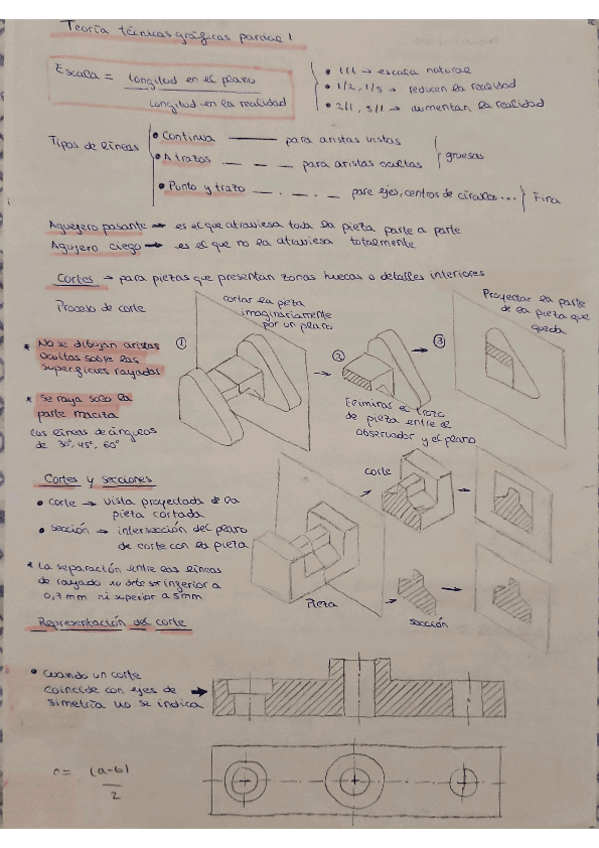 Teoría técnicas gráficas parcial 1
Escala = longitud en el plano
longitud en la realidad
• 1/1 → escala natural
• 1/2, 1/5 → reducen la realidad
• 2/1, 5/1 → aumentan la realidad
Tipos de líneas
• Continua ——— para aristas vistas
• A trazos — — — para aristas ocultas
gruesas
• Punto y trazo — . — . — para ejes, centros de círculos...
Fina
Agujero pasante → es el que atraviesa toda la pieza parte a parte
Agujero ciego → es el que no la atraviesa totalmente
Cortes → para piezas que presentan zonas huecas o detalles interiores
Proceso de corte
cortar la pieza
imaginariamente
por un plano
Proyectar la parte
de la pieza que
queda
* No se dibujan aristas
ocultas sobre las
superficies rayadas
①
②
③
* Se raya solo la
parte maciza
Las líneas de ángulos
de 30°, 45°, 60°
Eliminar el trozo
de pieza entre el
observador y el plano
Cortes y secciones
• corte → vista proyectada de la
pieza cortada
• sección → intersección del plano
de corte con la pieza
* La separación entre las líneas
de rayado no debe ser inferior a
0,7 mm ni superior a 5mm
corte
Pieza
sección
Representación del corte
• Cuando un corte
coincide con ejes de
simetría no se indica
r= (a-b)
2